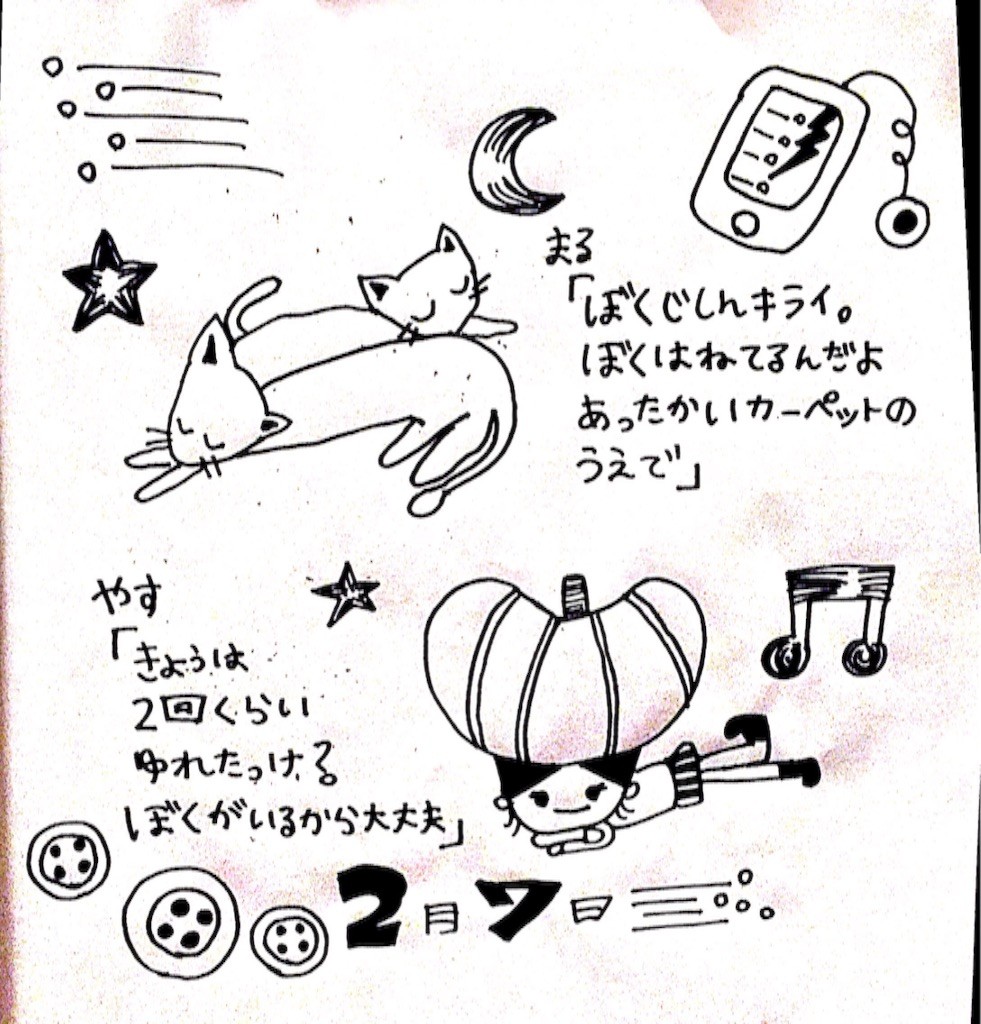 まる
「ぼくじしんキライ。
ぼくはねてるんだよ
あったかいカーペットの
うえで」
やす
「きょうは
2回くらい
ゆれたっけ?
ぼくがいるから大丈夫」
2月7日